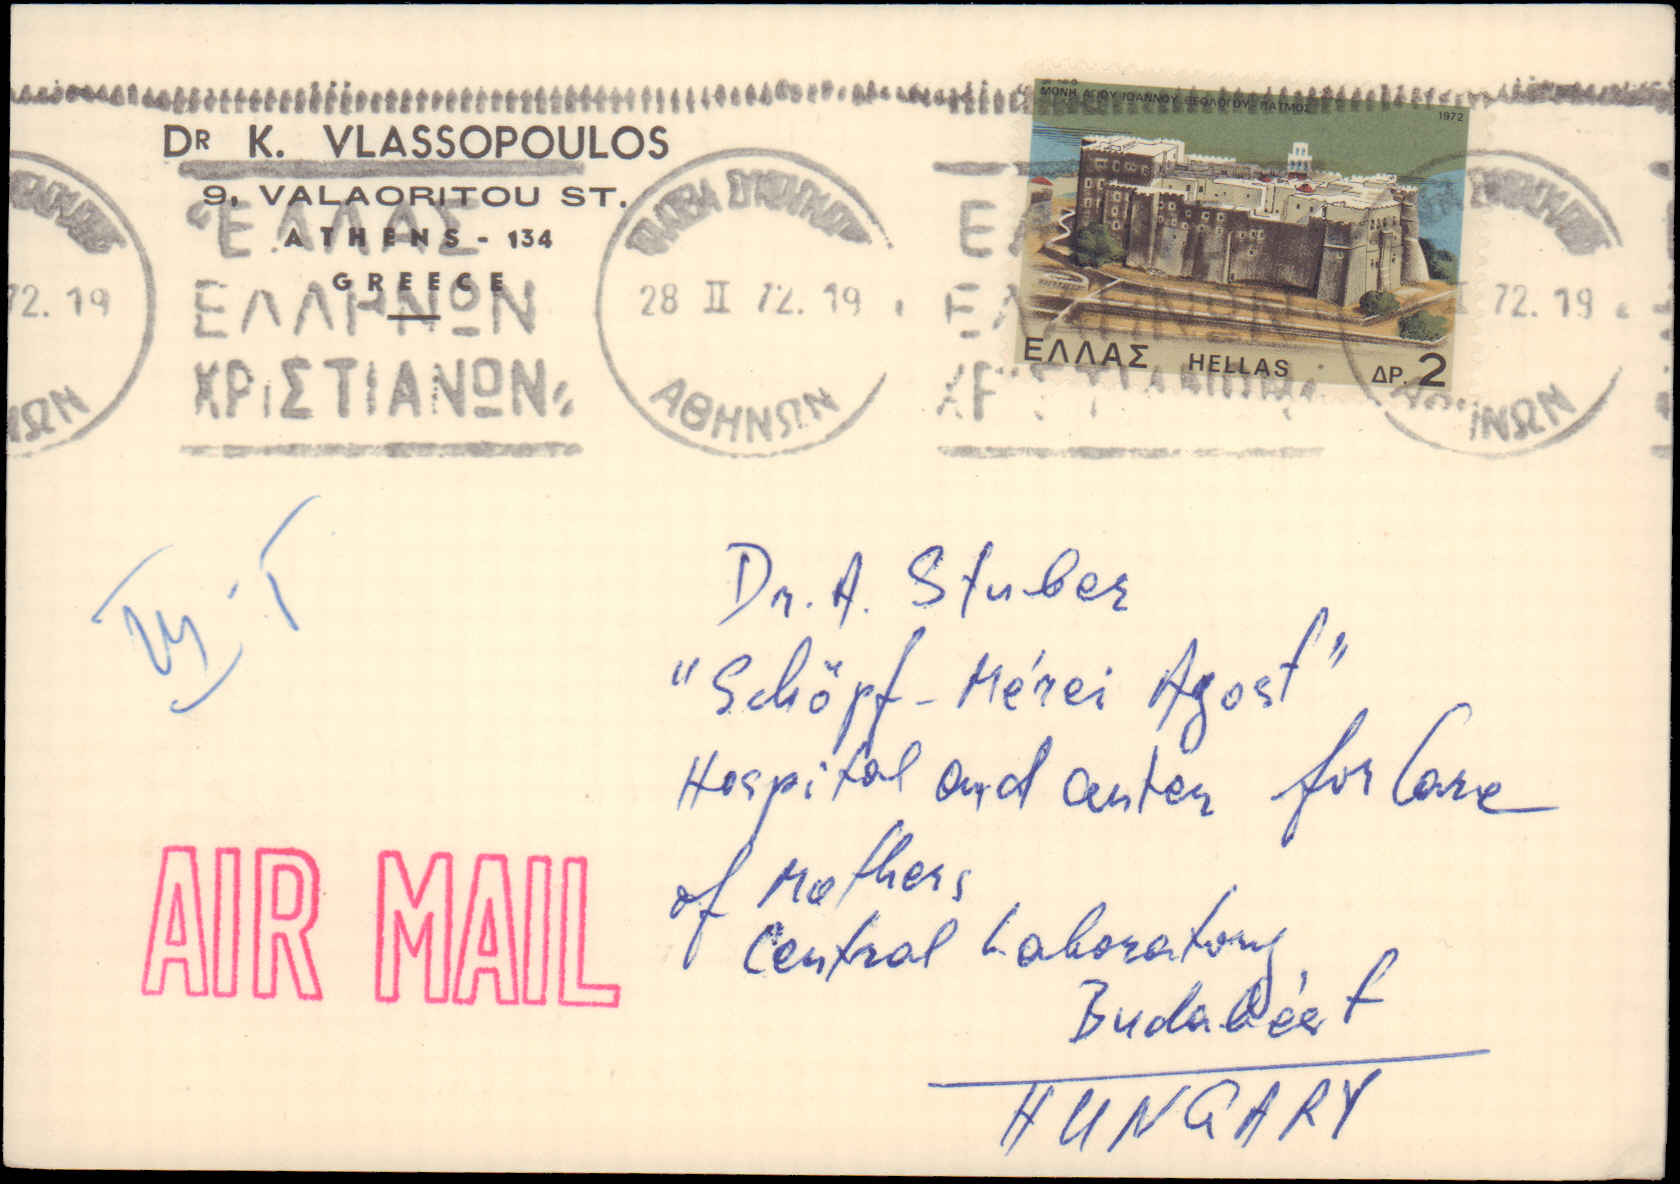 DR K. VLASSOPOULOS
9, VALAORITOU ST.
ATHENS - 134
GREECE
"ΕΛΛΑΣ
ΕΛΛΗΝΩΝ
ΧΡΙΣΤΙΑΝΩΝ"
28 II 72. 19
ΑΘΗΝΩΝ
72. 19
ΜΟΝΗ ΑΓΙΟΥ ΙΩΑΝΝΟΥ ΘΕΟΛΟΓΟΥ - ΠΑΤΜΟΣ
1972
ΕΛΛΑΣ HELLAS ΔΡ. 2
72. 19
Dr. A. Stuber
"Schöpf-Mérei Agost"
Hospital and center for Care
of Mothers
Central Laboratory
HUNGARY
AIR MAIL